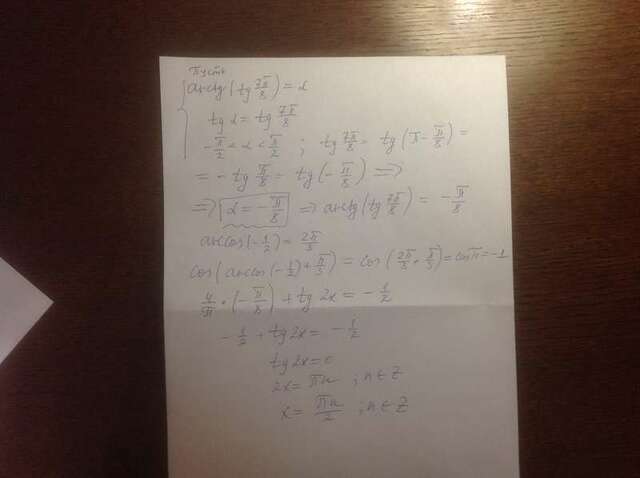 Пусть
arctg(tg 7π/8) = α
tg α = tg 7π/8
-π/2 < α < π/2 ; tg 7π/8 = tg(π - π/8) =
= - tg π/8 = tg(-π/8) ⇒
⇒ α = -π/8 ⇒ arctg(tg 7π/8) = -π/8
arccos(-1/2) = 2π/3
cos(arccos(-1/2) + π/3) = cos(2π/3 + π/3) = cos π = -1
4/π · (-π/8) + tg 2x = -1/2
-1/2 + tg 2x = -1/2
tg 2x = 0
2x = πn ; n ∈ Z
x = πn/2 ; n ∈ Z